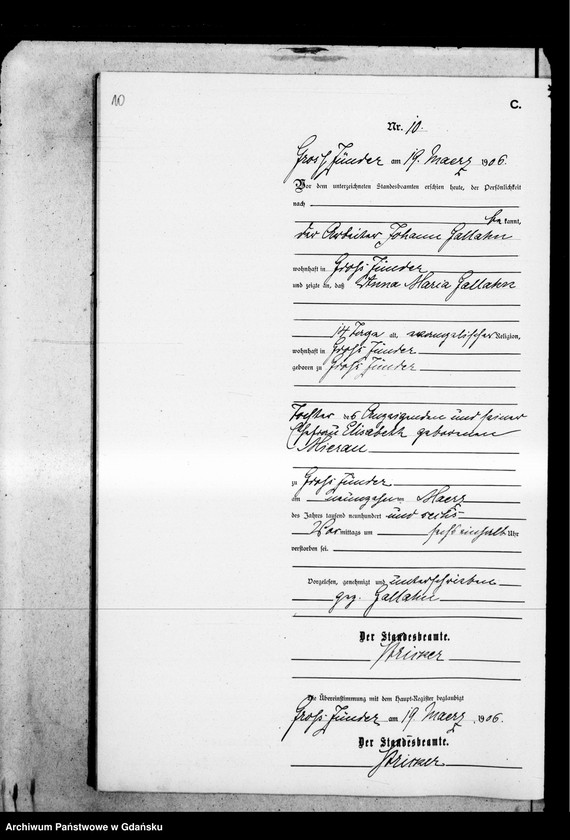 10
C.
Nr. 10.
Gross Zünder am 19. Maerz 1906.
Vor dem unterzeichneten Standesbeamten erschien heute, der Persönlichkeit
nach
bekannt,
der Arbeiter Johann Gallahn
wohnhaft in Gross Zünder
und zeigte an, daß Anna Maria Gallahn
14 Tage alt, evangelischer Religion,
wohnhaft in Gross Zünder
geboren zu Gross Zünder
Tochter des Anzeigenden und seiner
Ehefrau Elisabeth geborenen
Mierau
zu Gross Zünder
am neunzehnten Maerz
des Jahres tausend neunhundert und sechs
Vormittags um sechs einhalb Uhr
verstorben sei.
Vorgelesen, genehmigt und unterschrieben
gez. Gallahn
Der Standesbeamte.
Die Übereinstimmung mit dem Haupt-Register beglaubigt
Gross Zünder am 19. Maerz 1906.
Der Standesbeamte.
Archiwum Państwowe w Gdańsku